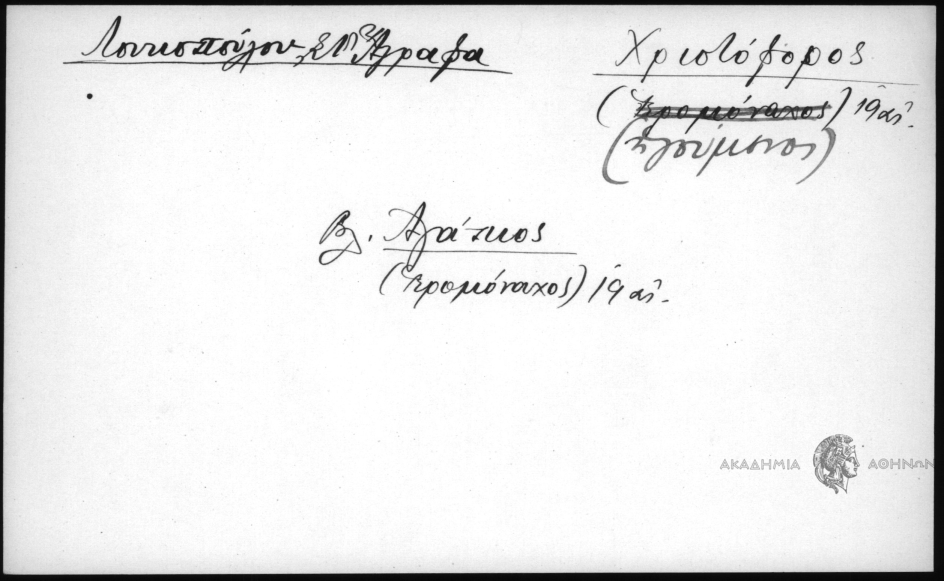 Χριστόφορος
(Ἱερομόναχος) 19 αἰ.
(ἡγούμενος)
Βλ. Ἀγάπιος
(ἱερομόναχος) 19 αἰ.
ΑΚΑΔΗΜΙΑ ΑΘΗΝΩΝ